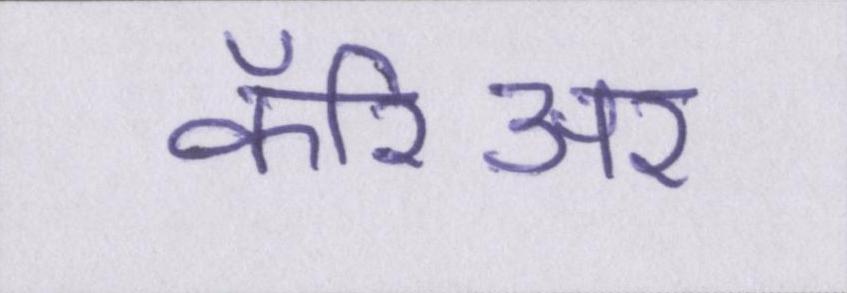 कॅरिअर